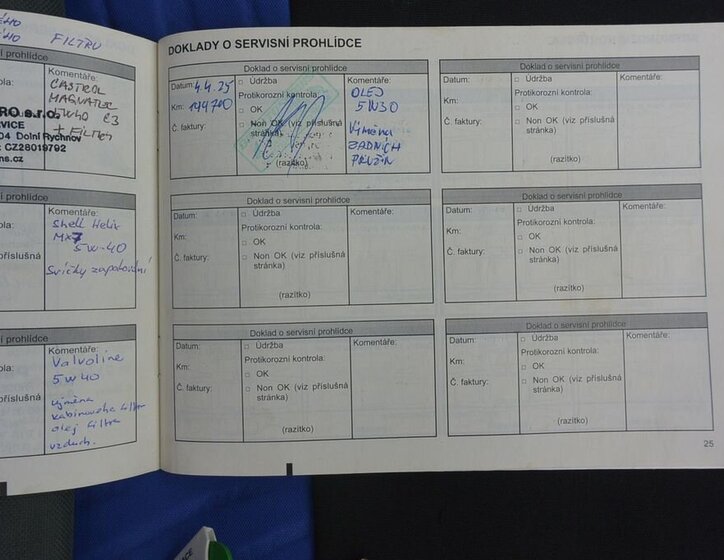 FILTRU
í prohlídce
Komentáře:
CASTROL
MAGNATEC
5W40 C3
+ FILTRY
RO s.r.o.
VICE
04 Dolní Rychnov
: CZ28019792
ns.cz
í prohlídce
Komentáře:
Shell Helix
5W-40
Svíčky zapalování
příslušná
í prohlídce
Komentáře:
Valvoline
5W40
výměna
kabinového filtru
olej filtru
vzduch.
příslušná
DOKLADY O SERVISNÍ PROHLÍDCE
Doklad o servisní prohlídce
Datum: 4.4.25
Km:
Č. faktury:
□ Údržba
Protikorozní kontrola:
□ OK
□ Non OK (viz příslušná
stránka)
(razítko)
Komentáře:
OLEJ
5W30
Výměna
ZADNÍCH
PRUŽIN
Doklad o servisní prohlídce
Datum:
Km:
Č. faktury:
□ Údržba
Protikorozní kontrola:
□ OK
□ Non OK (viz příslušná
stránka)
(razítko)
Komentáře:
Doklad o servisní prohlídce
Datum:
Km:
Č. faktury:
□ Údržba
Protikorozní kontrola:
□ OK
□ Non OK (viz příslušná
stránka)
(razítko)
Komentáře:
Doklad o servisní prohlídce
Datum:
Km:
Č. faktury:
□ Údržba
Protikorozní kontrola:
□ OK
□ Non OK (viz příslušná
stránka)
(razítko)
Komentáře:
Doklad o servisní prohlídce
Datum:
Km:
Č. faktury:
□ Údržba
Protikorozní kontrola:
□ OK
□ Non OK (viz příslušná
stránka)
(razítko)
Komentáře:
Doklad o servisní prohlídce
Datum:
Km:
Č. faktury:
□ Údržba
Protikorozní kontrola:
□ OK
□ Non OK (viz příslušná
stránka)
(razítko)
Komentáře:
25